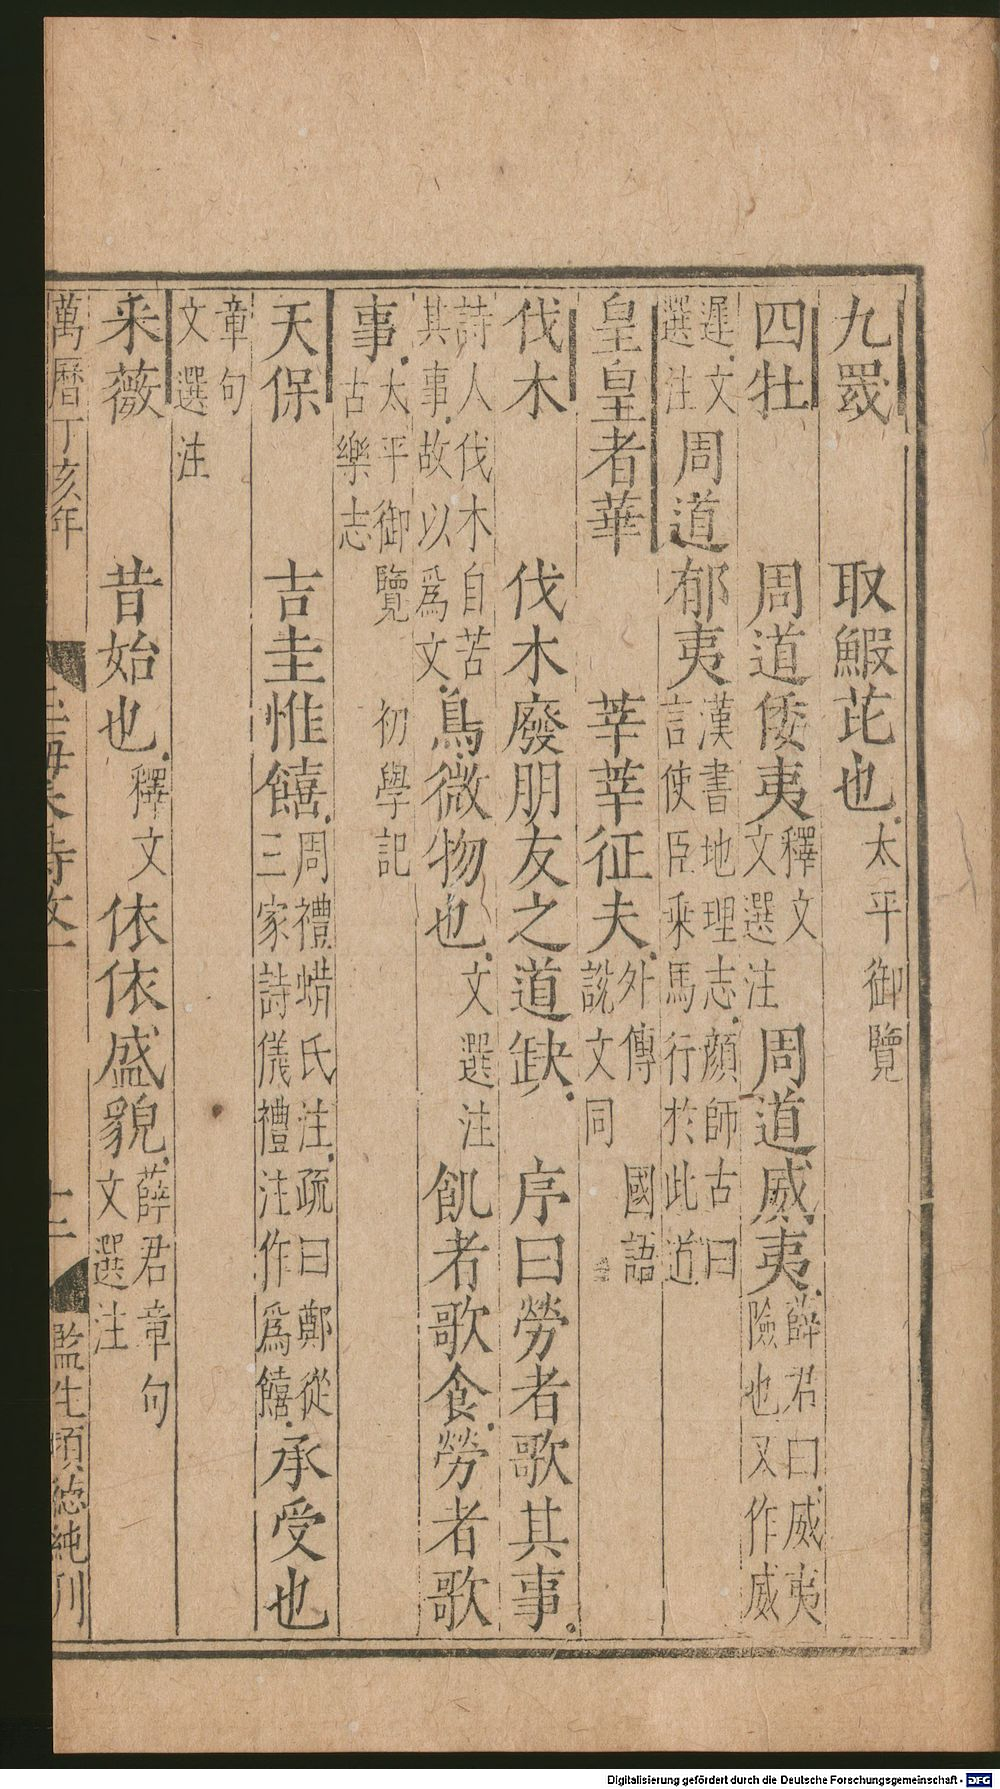 九罭 取鰕芘也太平御覽
四牡 周道倭夷釋文文選注周道威夷薛君曰威夷險也又作威
遲文選注周道郁夷漢書地理志顏師古曰言使臣乘馬行於此道
皇皇者華 莘莘征夫外傳國語說文同
伐木 伐木廢朋友之道缺序曰勞者歌其事
詩人伐木自苦其事故以爲文鳥微物也文選注飢者歌食勞者歌
事太平御覽初學記古樂志
天保 吉圭惟饎周禮蜡氏注疏曰鄭從三家詩儀禮注作爲饎承受也
章句文選注
采薇 昔始也釋文依依盛貌薛君章句文選注
萬曆丁亥年 詩攷 十二 監生 德純刊
Digitalisierung gefördert durch die Deutsche Forschungsgemeinschaft - DFG